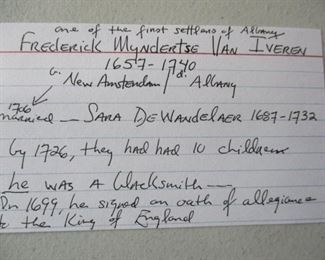 one of the first settlers of Albany
FREDERICK MYNDERTSE VAN IVEREN
1657-1740
b. New Amsterdam / d. Albany
1706
married - SARA DEWANDELAER 1687-1732
by 1726, they had had 10 children
he WAS A blacksmith -
In 1699, he signed an oath of allegiance
to the King of England